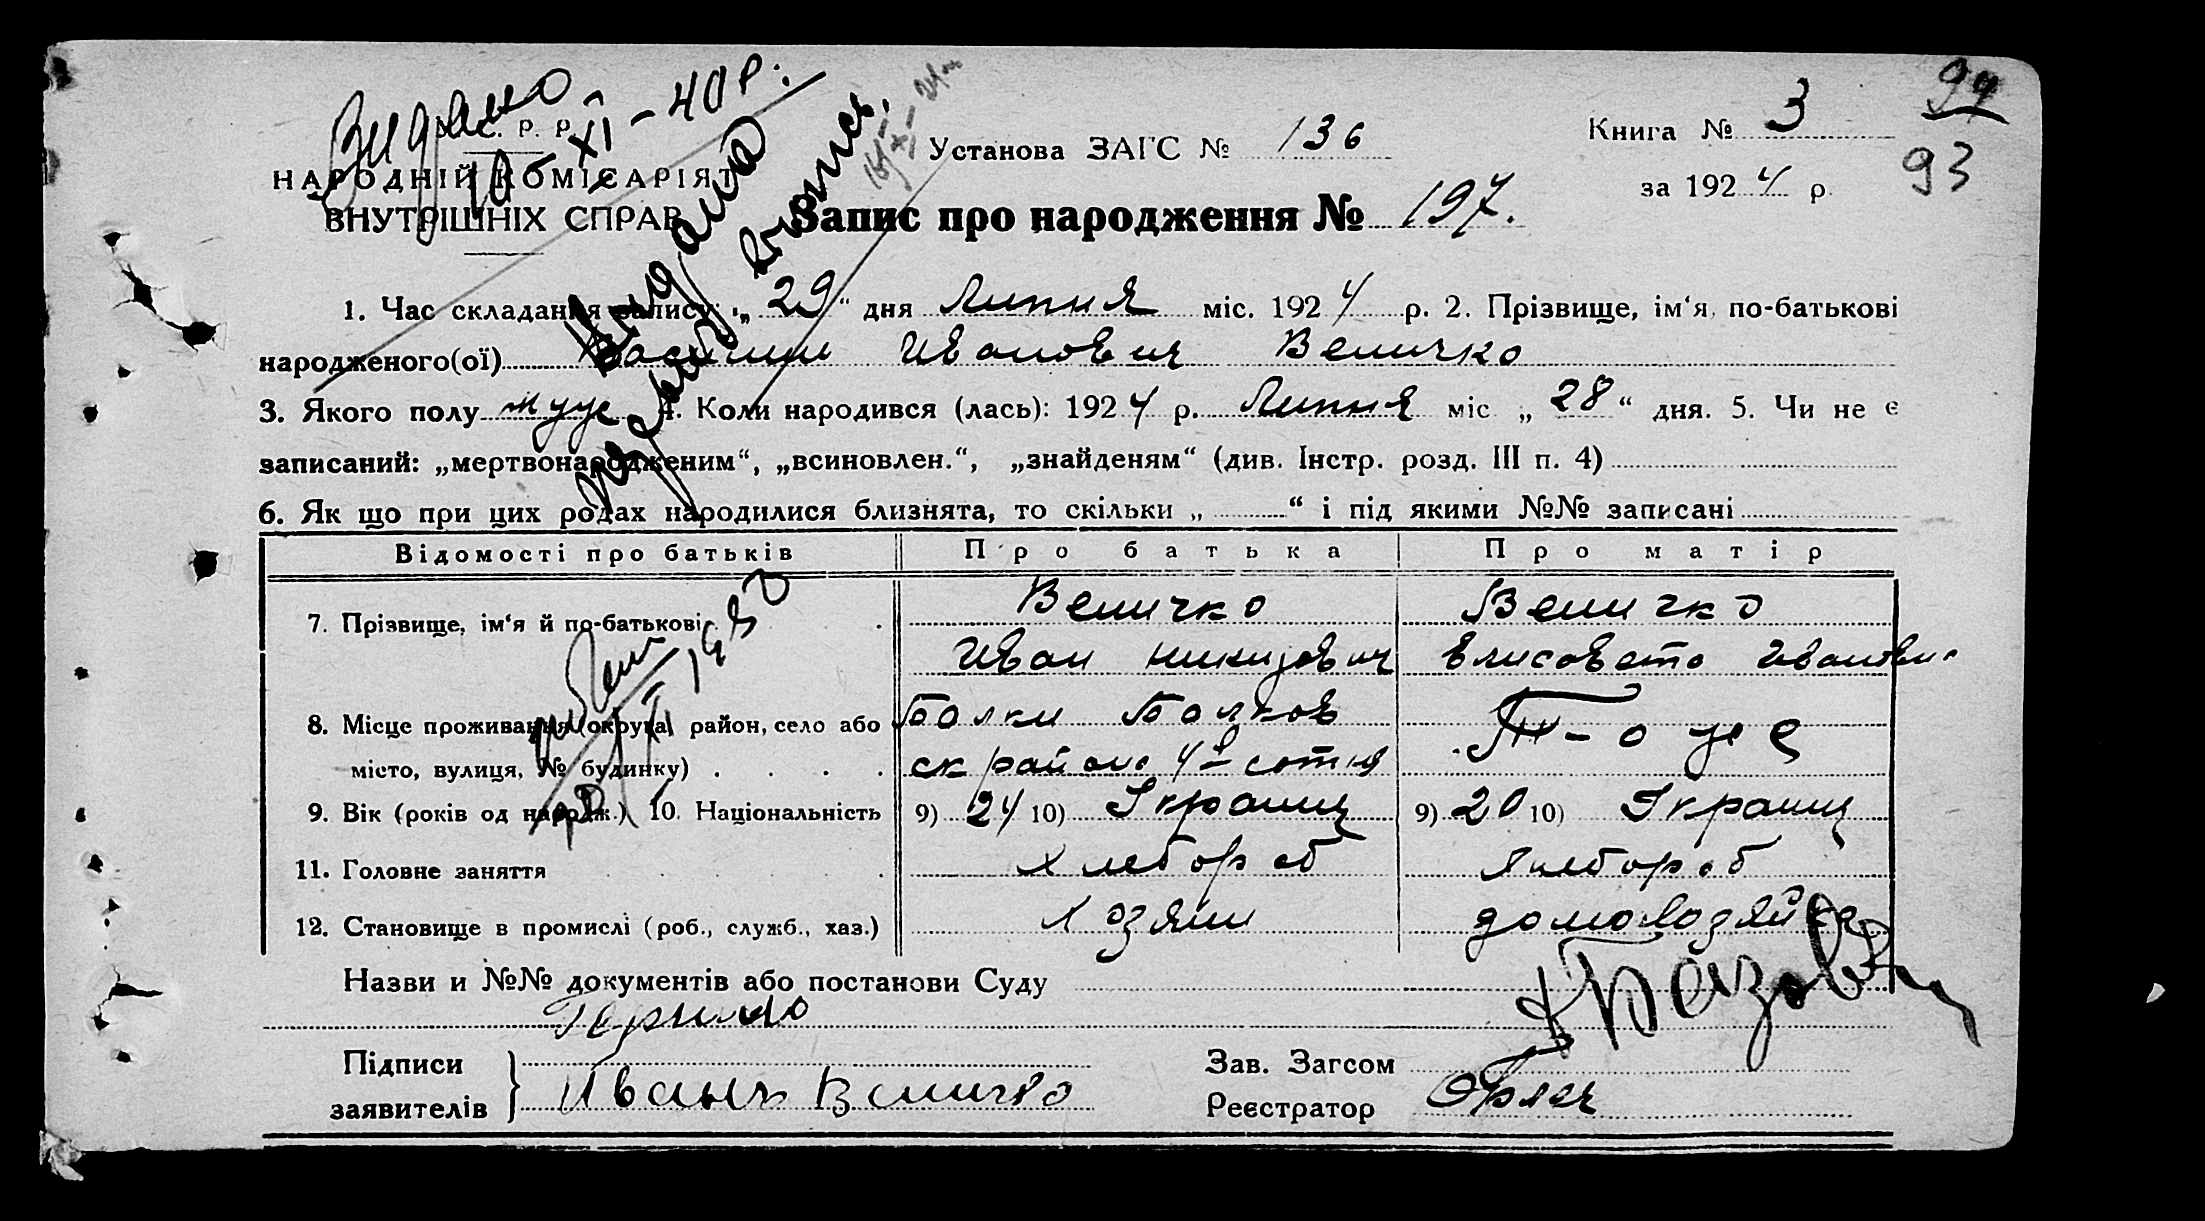 94
93
Видано
10 XI - 40 р.
С. Р. Р.
НАРОДНІЙ КОМІСАРІЯТ
ВНУТРІШНІХ СПРАВ
Установа ЗАГС № 136
Книга № 3
за 1924 р.
Запис про народження № 197.
Видана
выпись.
1. Час складання запису: „29“ дня Липня міс. 1924 р. 2. Прізвище, ім‘я, по-батькові
народженого(ої) Василий Иванович Величко
3. Якого полу муж 4. Коли народився (лась): 1924 р. Липня міс „28“ дня. 5. Чи не є
записаний: „мертвонародженим“, „всиновлен.“, „знайденям“ (див. Інстр. розд. III п. 4)
6. Як що при цих родах народилися близнята, то скільки „ “ і під якими №№ записані
Відомості про батьків Про батька Про матір
7. Прізвище, ім‘я й по-батькові Величко Величко
Иван Никитович Елисавета Ивановна
8. Місце проживання (округа, район, село або Балки Балков
місто, вулиця, № будинку) ск района 4я сотня То же
9. Вік (років од народж.) 10. Національність 9) 24 10) Украинц 9) 20 10) Украинц
11. Головне заняття Хлебороб Хлебороб
12. Становище в промислі (роб., служб., хаз.) Хозяин домохозяйка
Назви и №№ документів або постанови Суду
Підписи
заявителів Иванъ Величко
Зав. Загсом
Реєстратор